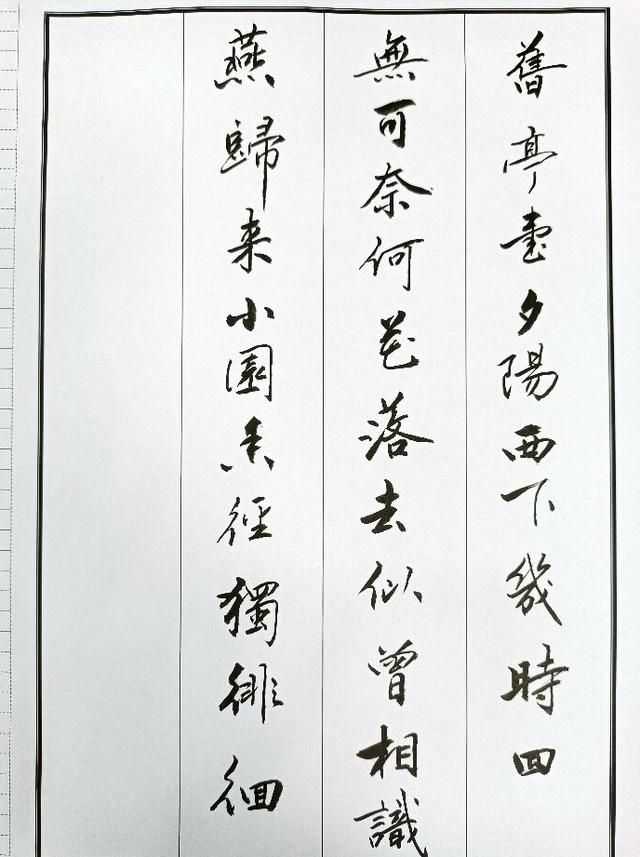 舊亭臺夕陽西下幾時回
無可奈何花落去似曾相識
燕歸来小園香徑獨徘徊